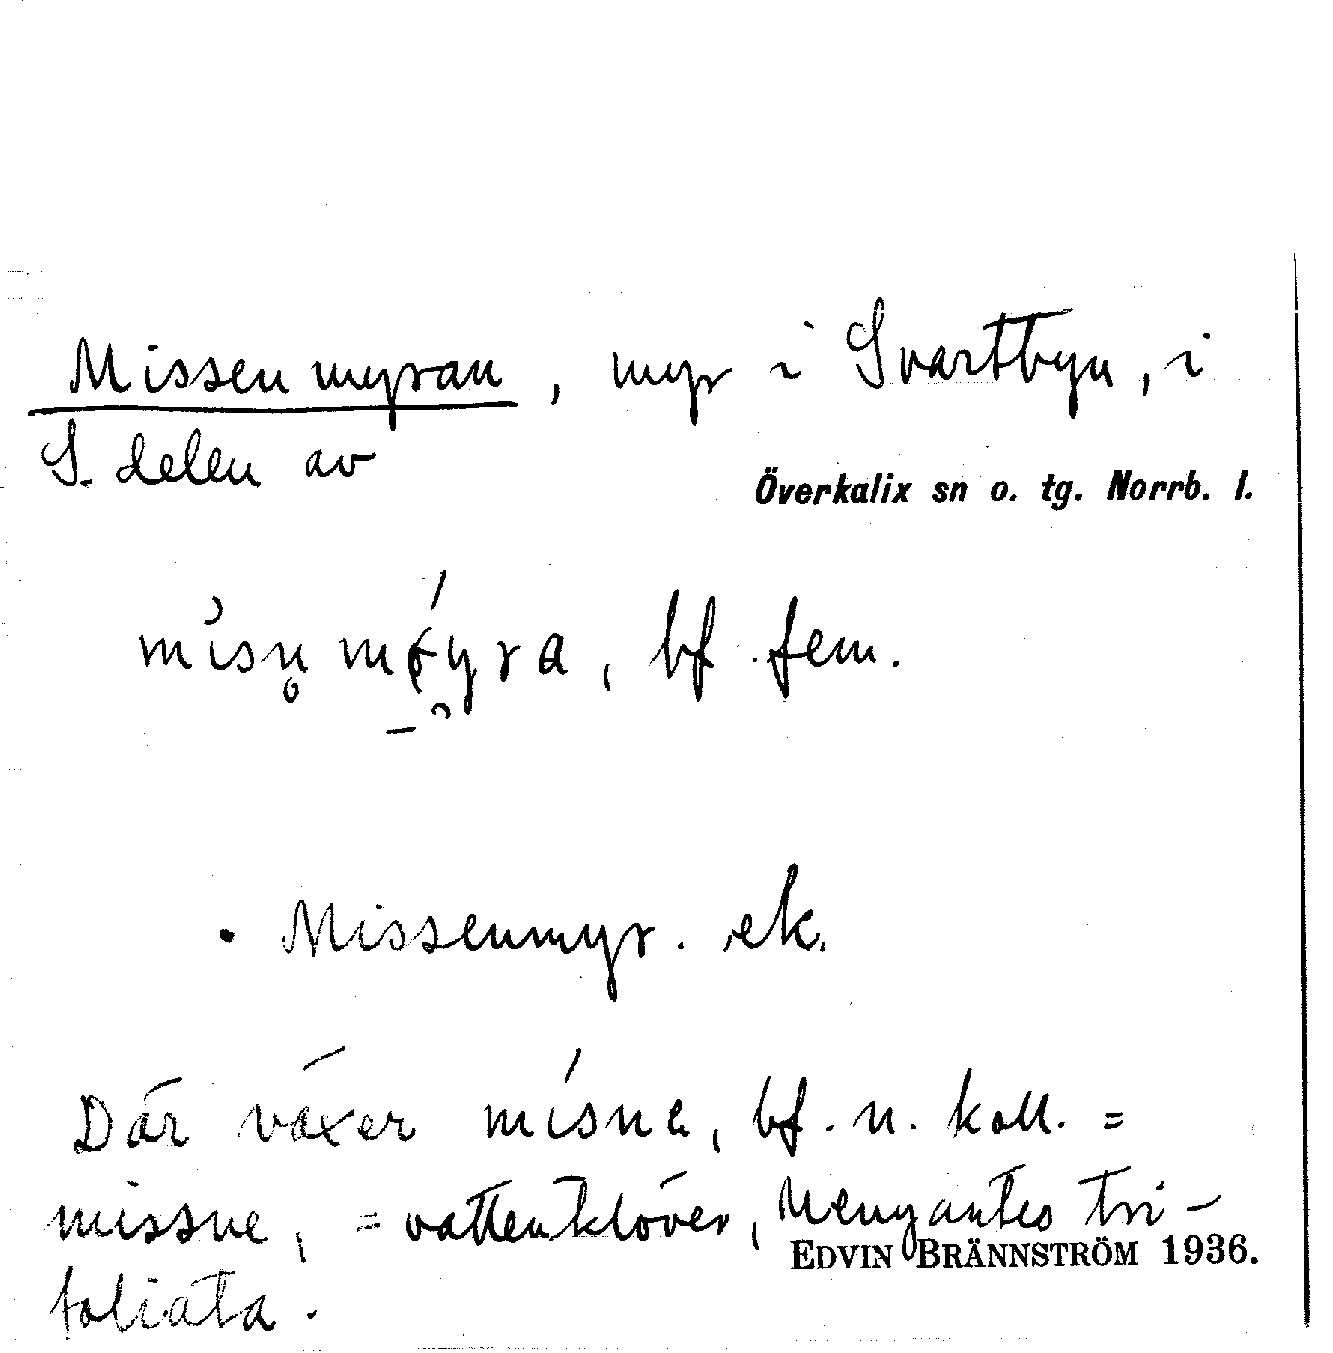 Missenmyran, myr i Svartbyn, i
S. delen av
Överkalix sn o. tg. Norrb. l.
bf. fem.
• Missenmyr. ek.
Där växer misne, bf. n. koll. =
missne, = vattenklöver, Menyantes tri-
EDVIN BRÄNNSTRÖM 1936.
foliata.